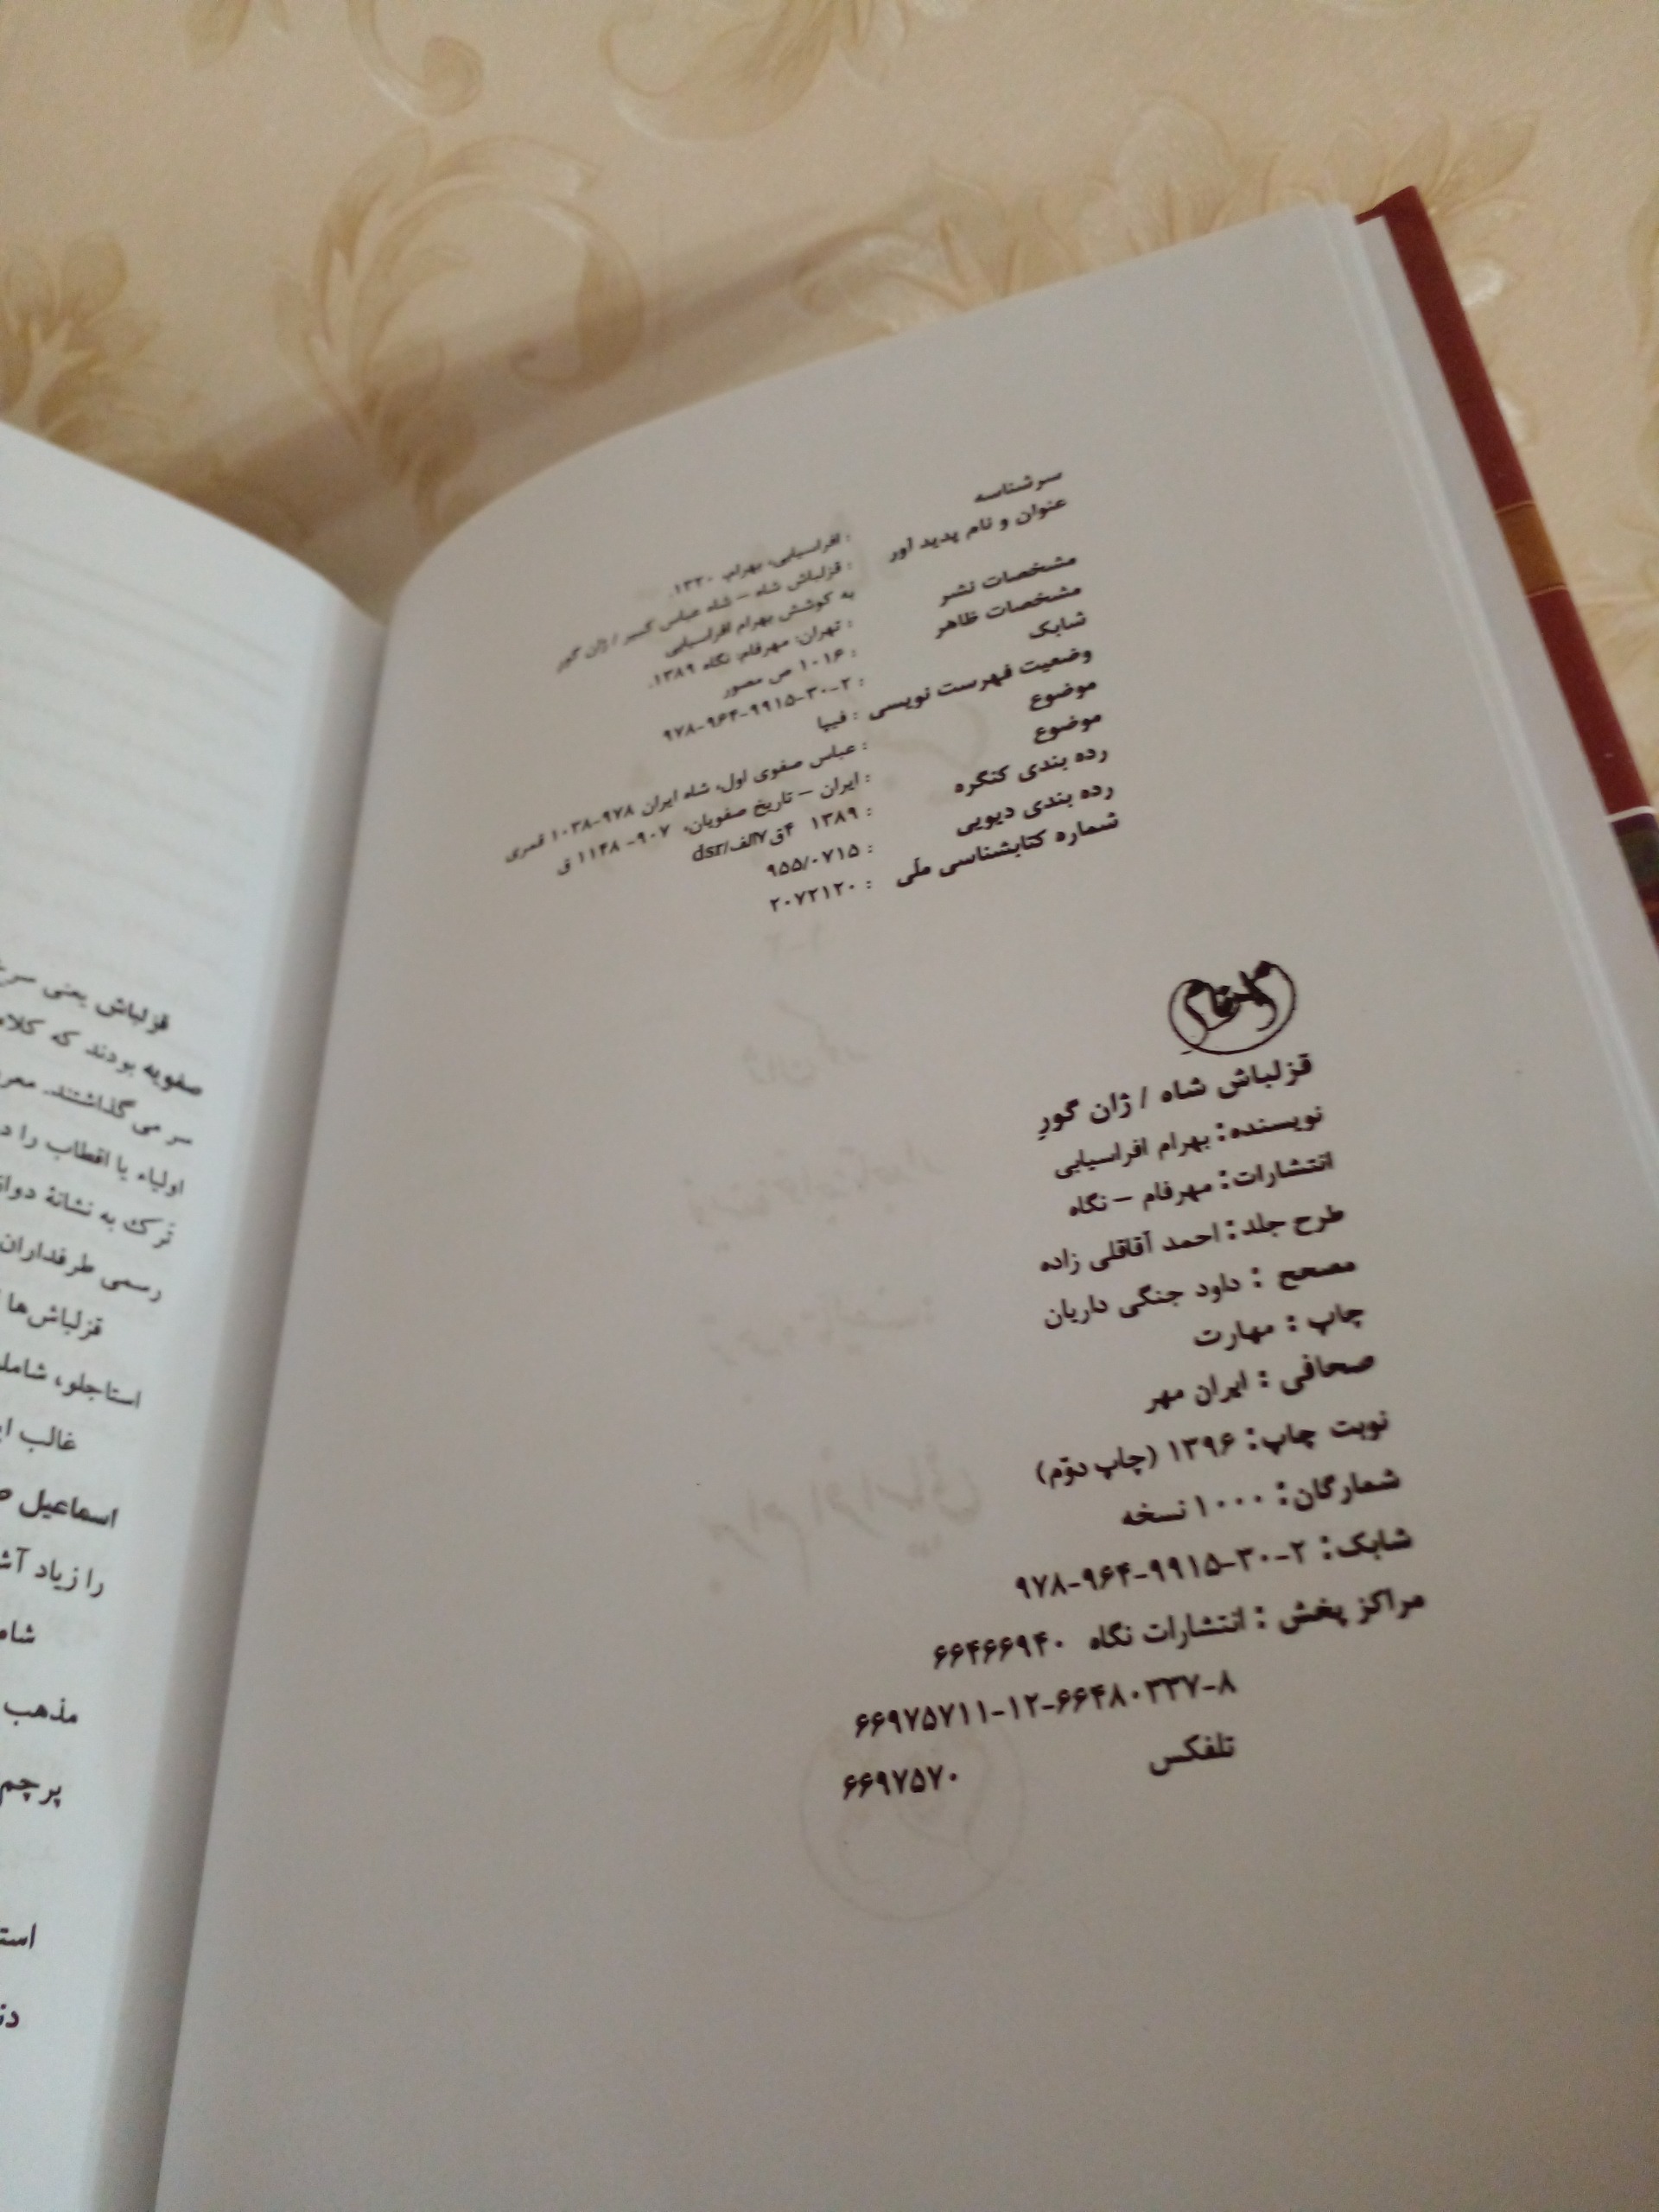 سرشناسه : افراسیابی، بهرام، ۱۳۲۰.
عنوان و نام پدید آور : قزلباش شاه – شاه عباس کبیر / ژان گور
به کوشش بهرام افراسیابی
مشخصات نشر : تهران: مهرفام، نگاه ۱۳۸۹.
مشخصات ظاهر : ۱۰۱۶ ص مصور
شابک : ۲-۳۰-۹۹۱۵-۹۶۴-۹۷۸
وضعیت فهرست نویسی : فیپا
موضوع : عباس صفوی اول، شاه ایران ۹۷۸-۱۰۳۸ قمری
موضوع : ایران – تاریخ صفویان، ۹۰۷- ۱۱۴۸ ق
رده بندی کنگره : ۱۳۸۹ ۴ق۷الف/dsr
رده بندی دیویی : ۹۵۵/۰۷۱۵
شماره کتابشناسی ملّی : ۲۰۷۲۱۲۰
مهرفام
قزلباش شاه / ژان گورِ
نویسنده: بهرام افراسیابی
انتشارات: مهرفام – نگاه
طرح جلد: احمد آقاقلی زاده
مصحح : داود جنگی داریان
چاپ : مهارت
صحافی : ایران مهر
نوبت چاپ: ۱۳۹۶ (چاپ دوّم)
شمارگان: ۱۰۰۰ نسخه
شابک: ۲-۳۰-۹۹۱۵-۹۶۴-۹۷۸
مراکز پخش : انتشارات نگاه ۶۶۴۶۶۹۴۰
۶۶۹۷۵۷۱۱-۱۲-۶۶۴۸۰۳۳۷-۸
تلفکس ۶۶۹۷۵۷۰
قزلباش یعنی
صفویه بودند که
سر می گذاشتند.
اولیاء یا اقطاب را
تَرک به نشانهٔ
رسمی طرفداران
قزلباش‌ها
استاجلو،
غالب
اسماعیل
را زیاد
مذهب
پرچم